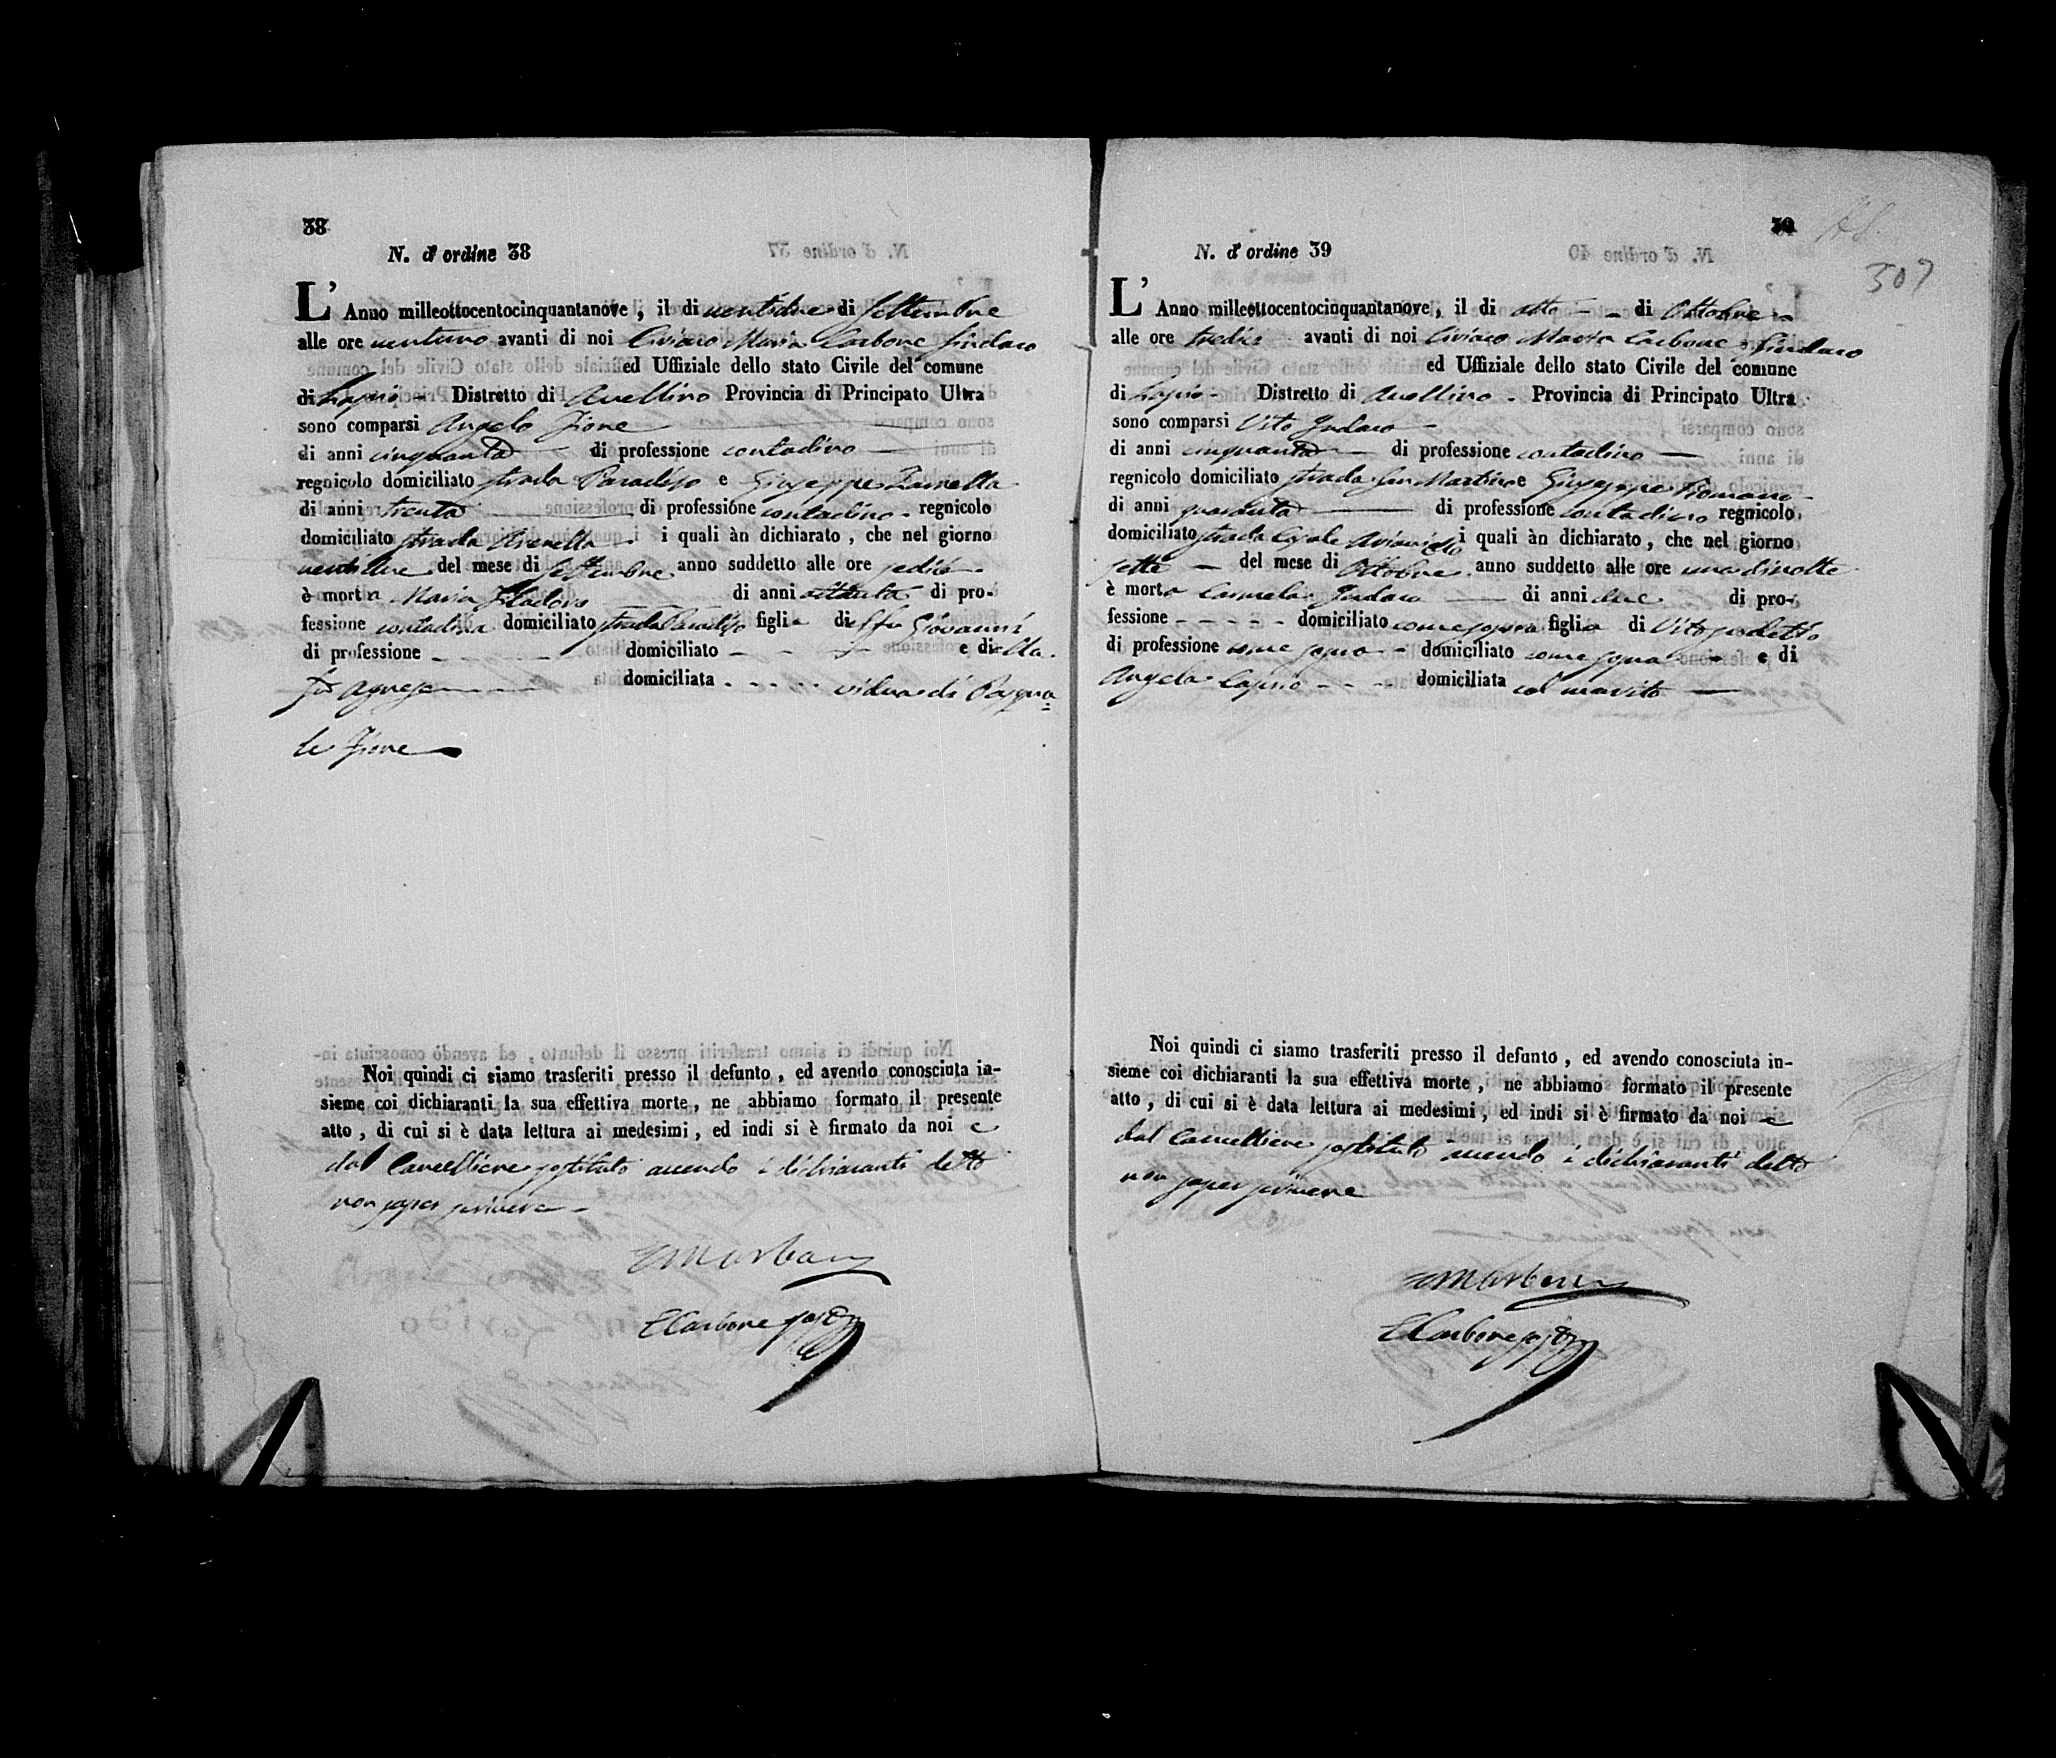 38
N. d' ordine 38
L' Anno milleottocentocinquantanove, il di ventidue di Settembre
alle ore ventuno avanti di noi Ciriaco Maria Carbone Sindaco
ed Uffiziale dello stato Civile del comune
di Lapio - Distretto di Avellino Provincia di Principato Ultra
sono comparsi Angelo
di anni cinquanta di professione contadino
regnicolo domiciliato strada Paradiso e Giuseppe
di anni trenta di professione contadino - regnicolo
domiciliato strada i quali àn dichiarato, che nel giorno
ventidue del mese di Settembre anno suddetto alle ore sedici
è morta Maria di anni ottanta di pro-
fessione contadina domiciliato strada Paradiso figlia di fu Giovanni
di professione - - domiciliato - - e di
fu Agnese domiciliata - - - - vedova di Pasqua=
le
Noi quindi ci siamo trasferiti presso il defunto, ed avendo conosciuta in-
sieme coi dichiaranti la sua effettiva morte, ne abbiamo formato il presente
atto, di cui si è data lettura ai medesimi, ed indi si è firmato da noi e
dal Cancelliere sostituto avendo i dichiaranti detto
non saper scrivere -
E Carbone
39
307
N. d' ordine 39
L' Anno milleottocentocinquantanove, il di otto - - di Ottobre
alle ore tredici avanti di noi Ciriaco Maria Carbone Sindaco
ed Uffiziale dello stato Civile del comune
di Lapio - Distretto di Avellino - Provincia di Principato Ultra
sono comparsi Vito
di anni cinquanta di professione contadino
regnicolo domiciliato strada San Martino e Giuseppe Romano
di anni quaranta di professione contadino regnicolo
domiciliato strada i quali àn dichiarato, che nel giorno
sette - del mese di Ottobre anno suddetto alle ore una di notte
è morta Carmela di anni due di pro-
fessione - - - - - domiciliato come sopra figlia di Vito sudetto
di professione come sopra - domiciliato come sopra e di
Angela - - - domiciliata col marito
Noi quindi ci siamo trasferiti presso il defunto, ed avendo conosciuta in-
sieme coi dichiaranti la sua effettiva morte, ne abbiamo formato il presente
atto, di cui si è data lettura ai medesimi, ed indi si è firmato da noi e
dal Cancelliere sostituto avendo i dichiaranti detto
non saper scrivere
E Carbone